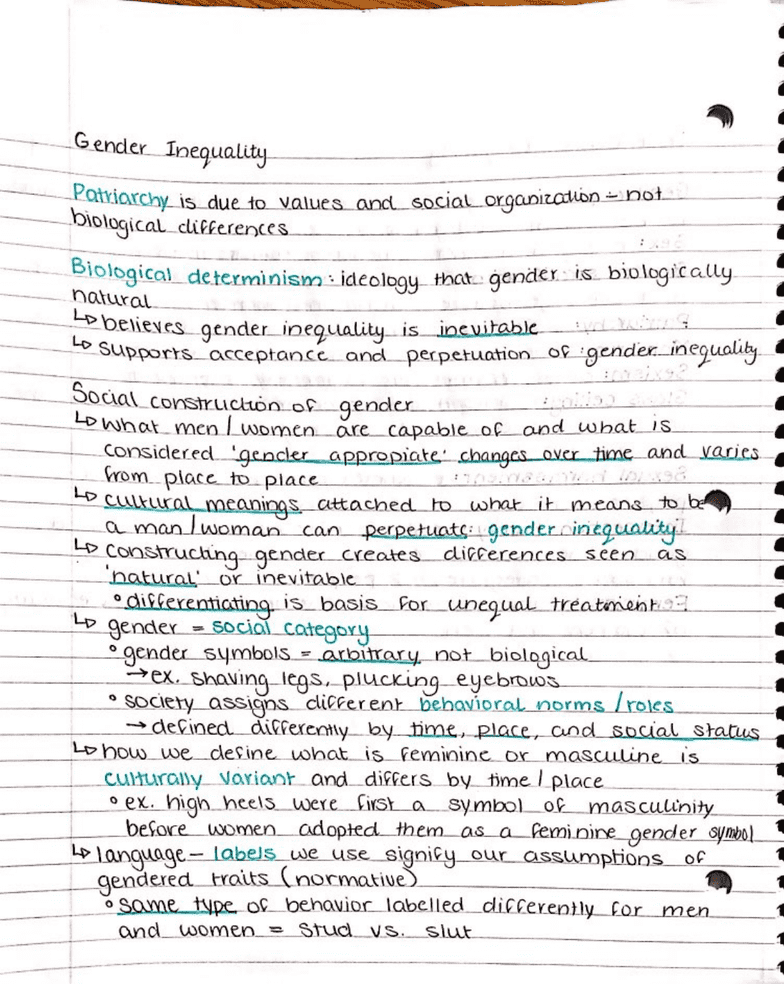 Gender Inequality
Patriarchy is due to values and social organization - not
biological differences
Biological determinism: ideology that gender is biologically
natural
↳ believes gender inequality is inevitable
↳ supports acceptance and perpetuation of gender inequality
Social construction of gender
↳ what men/women are capable of and what is
considered 'gender appropiate' changes over time and varies
from place to place
↳ cultural meanings attached to what it means to be
a man/woman can perpetuate gender inequality
↳ constructing gender creates differences seen as
'natural' or inevitable
° differentiating is basis for unequal treatment
↳ gender = social category
° gender symbols = arbitrary not biological
→ ex. shaving legs, plucking eyebrows
° society assigns different behavioral norms/roles
→ defined differently by time, place, and social status
↳ how we define what is feminine or masculine is
culturally variant and differs by time/place
° ex. high heels were first a symbol of masculinity
before women adopted them as a feminine gender symbol
↳ language - labels we use signify our assumptions of
gendered traits (normative)
° same type of behavior labelled differently for men
and women = stud vs. slut